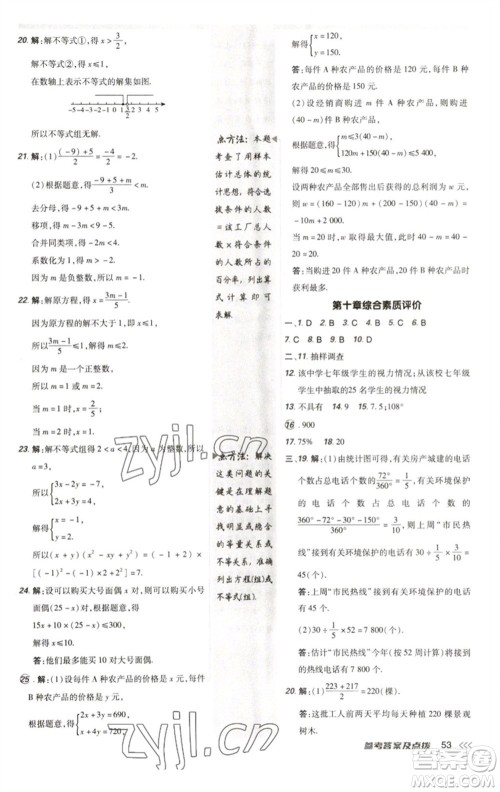 20. 解:解不等式①,得 x>3/2,
解不等式②,得 x≤-1,
在数轴上表示不等式的解集如图.
-5 -4 -3 -2 -1 0 1 2 3 4 5
所以不等式组无解.
21. 解:(1)((-9)+5)/2=-4/2=-2.
(2)根据题意,得(-9+5+m)/3<m.
去分母,得-9+5+m<3m.
移项,得m-3m<9-5.
合并同类项,得-2m<4.
系数化为1,得m>-2.
因为m为负整数,所以m=-1.
22. 解:解原方程,得x=(3m-1)/5.
因为原方程的解不大于1,
所以(3m-1)/5≤1,解得m≤2.
因为m是一个正整数,
所以m=1或m=2.
当m=1时,x=2/5;
当m=2时,x=1.
23. 解:解不等式组得2<a<4,所以
a=3.
所以{3x-2y=-7,
2x+3y=4,
解得{x=-1,
y=2.
所以(x+y)(x²-xy+y²)=(-1+2)×
[(-1)²-(-1)×2+2²]=7.
24. 解:设可以购买大号字画x个,则购买小号
字画(25-x)个.由题意,得
15x+10×(25-x)≤300,
解得x≤10.
答:他们最多能买10个大号字画.
25. 解:(1)设每件A种农产品的价格是x元,每件
B种农产品的价格是y元,
根据题意,得{2x+3y=690,
x+4y=720,
点方法:本题
考查了用样本
估计总体的统
计思想,符合选
拔条件的人数
=该工厂总人
数×符合条件
的人数所占的
百分率,列出算
式计算即可
求解.
点方法:解决
这类问题的关
键是在理解题
意的基础上寻
找明显或蕴含
的等量关系或
不等关系,准确
列出方程(组)或
不等式(组).
解得{x=120,
y=150.
答:每件A种农产品的价格是120元,每件B种
农产品的价格是150元.
(2)设经销商购进m件A种农产品,则购进
(40-m)件B种农产品.
根据题意,得{m≤3(40-m),
解得20≤m≤30.
设两种农产品全部售出的总利润为w元,则w=
-10m+2000.
当m=20时,w取得最大值,此时40-m=40-
20=20.
答:当购进20件A种农产品,20件B种农产品时
获利最多.
第十章综合素质评价
一、1. D 2. B 3. D 4. C 5. B 6. C
7. C 8. B 9. D 10. D
二、11. 抽样调查
12. 该中学七年级学生的视力情况;从该校七年级
学生中抽取的25名学生的视力情况
13. 不具有 14. 9 15. 7.5;108°
16. 900
17. 75% 18. 20
三、19. 解:(1)由统计图可得,有关房产城建的电话
个数占总电话个数的72°/360°=1/5,有关环境保护
的电话个数占总电话个数的
(360°-180°-72°)/360°=3/10,则上周“市民热
线”有关环境保护的电话有30÷1/5×3/10=
45(个).
答:上周“市民热线”有关环境保护的电话
有45个.
(2)根据题意得30÷1/5×52=7 800(个).
答:估计“市民热线”一年(按52周计算)接
到的电话约有7 800个.
20. 解:(1)(223+217)/2=220(棵).
答:这批工人前两年平均每年种植220棵景观
树木.
参考答案及点拨 53
zyjl.cn
zyjl.cn